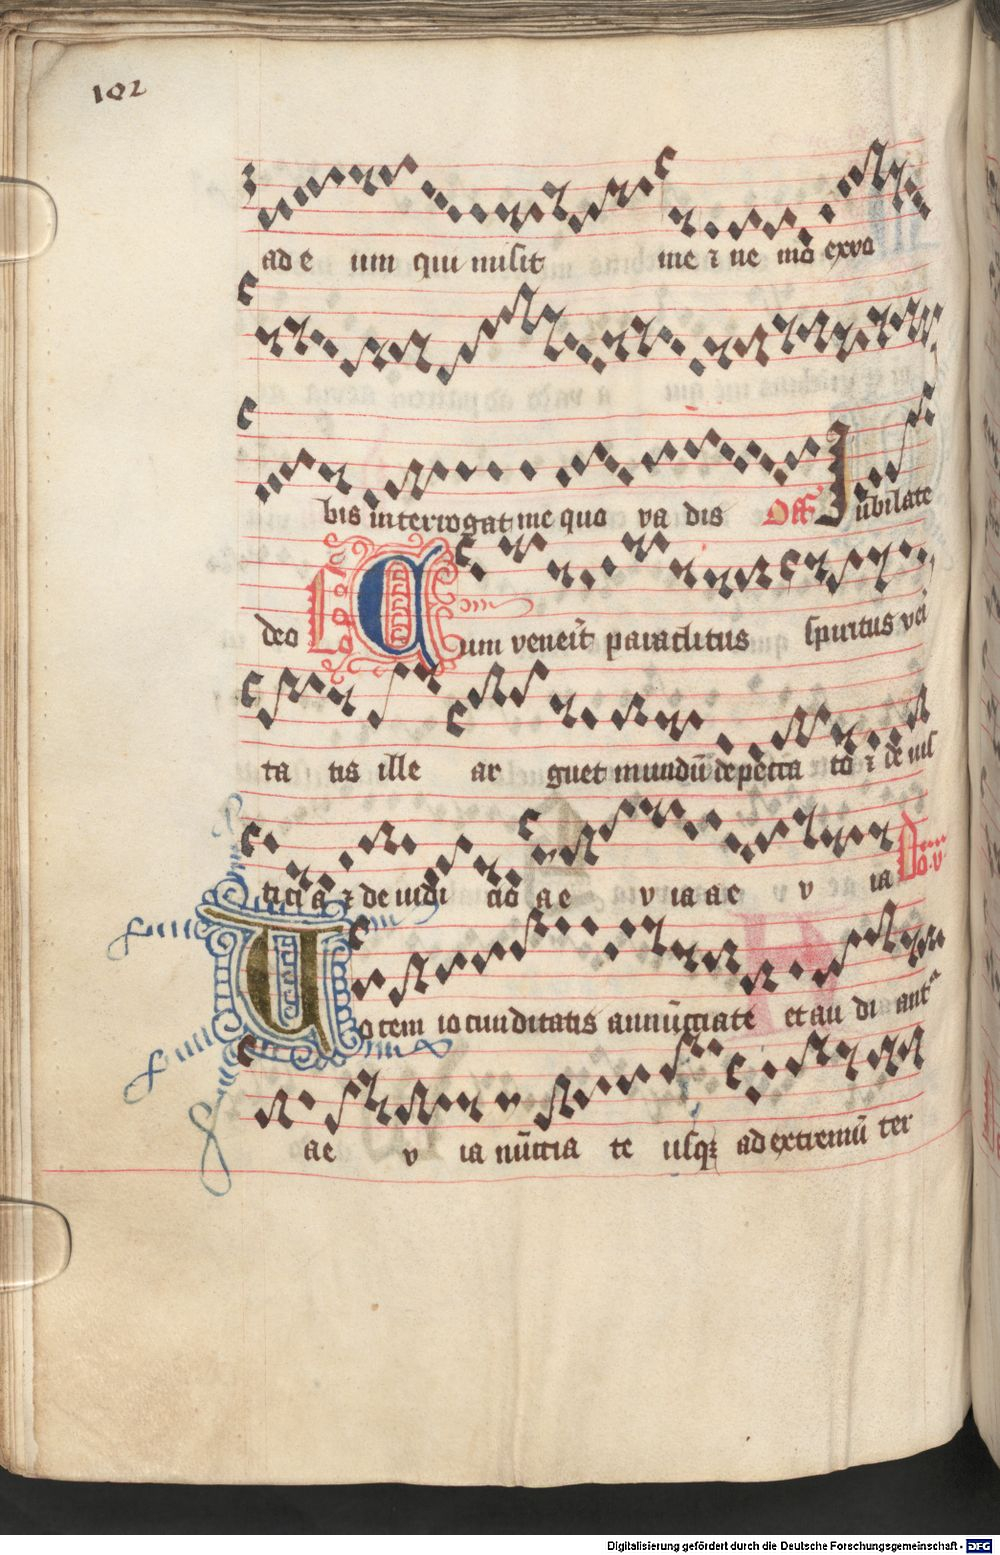 102
ad e um qui misit me ⁊ ne mō ex vo
bis interrogat me quo va dis Off Jubilate
deo Co Cum veneīt paraclitus spiritus vēi
ta tis ille ar guet mundū de pecca to ⁊ de ius
ticia ⁊ de iudi cio ae v ia ae v ia Dom̄
o.v.
Uocem iocunditatis annūcciate et au di ant᷑
ae v ia nūccia te usqꝫ ad extremū ter
Digitalisierung gefördert durch die Deutsche Forschungsgemeinschaft - DFG